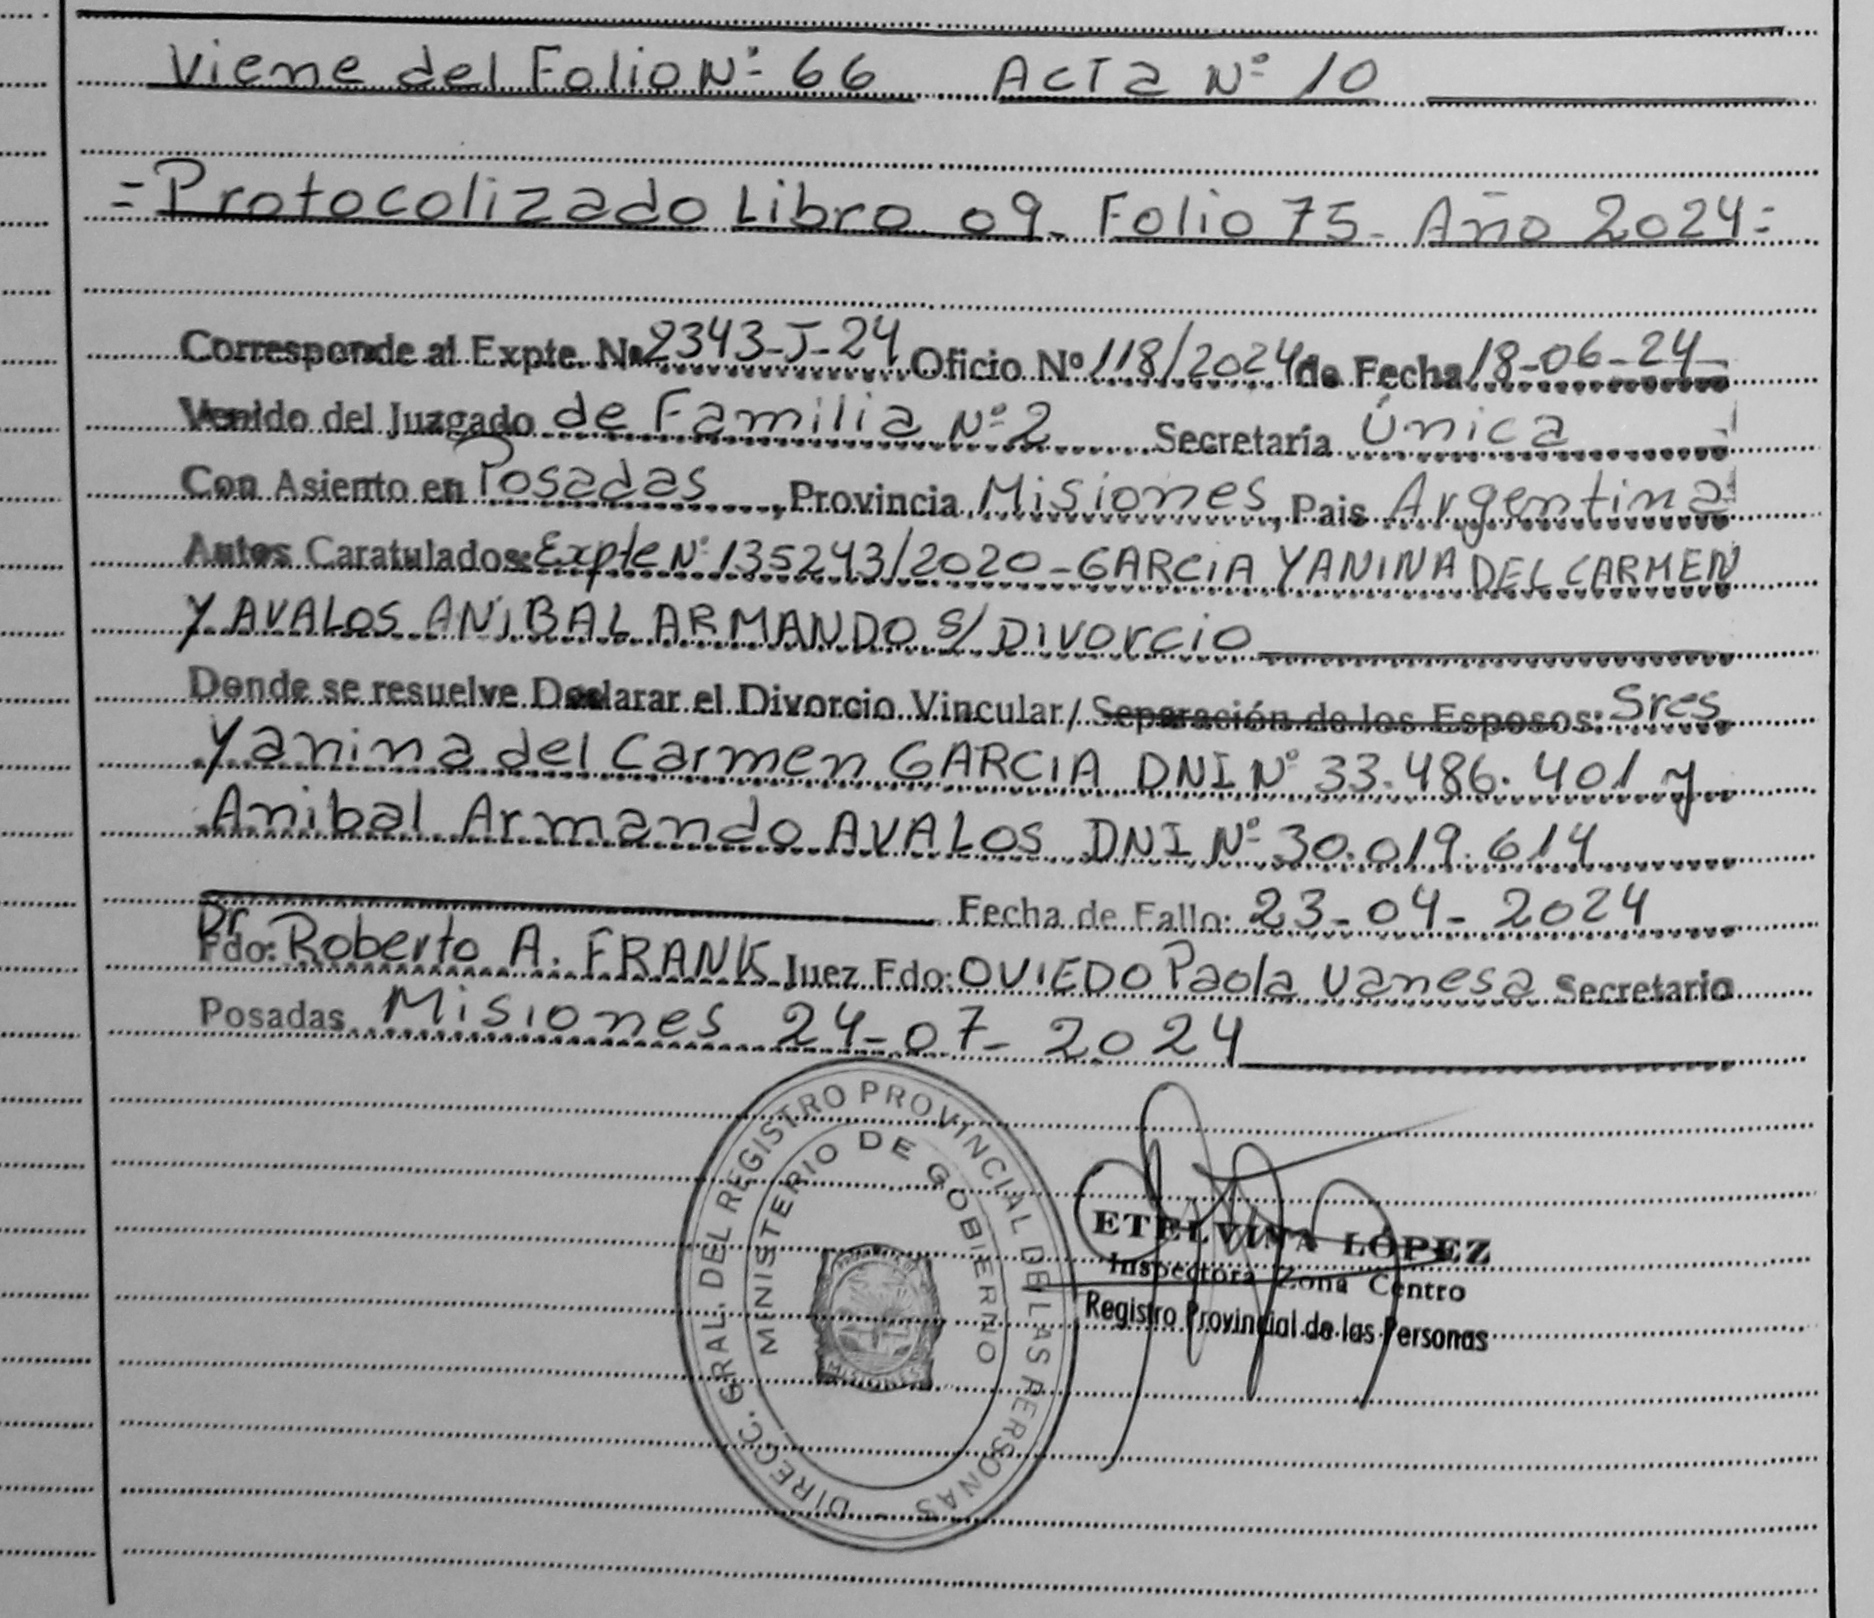 Viene del Folio Nº 66 Acta Nº 10
=Protocolizado Libro 09- Folio 75- Año 2024=
Corresponde al Expte. Nº 2343-J-24 Oficio Nº 118/2024 de Fecha 18-06-24-
Venido del Juzgado de Familia Nº 2 Secretaría Única
Con Asiento en Posadas, Provincia Misiones, Pais Argentina
Autos Caratulados: Expte Nº 135243/2020-GARCIA YANINA DEL CARMEN
Y AVALOS ANIBAL ARMANDO S/ DIVORCIO
Donde se resuelve Declarar el Divorcio Vincular/ Separación de los Esposos: Sres
Yanina del Carmen GARCIA DNI Nº 33.486.401 y
Anibal Armando AVALOS DNI Nº 30.019.614
Fecha de Fallo: 23-04-2024
Dr
Fdo: Roberto A. FRANK Juez Fdo: OVIEDO Paola Vanesa Secretario
Posadas Misiones 24-07-2024
DIRECC. GRAL. DEL REGISTRO PROVINCIAL DE LAS PERSONAS
MINISTERIO DE GOBIERNO
MISIONES
ETELVINA LÓPEZ
Inspectora Zona Centro
Registro Provincial de las Personas